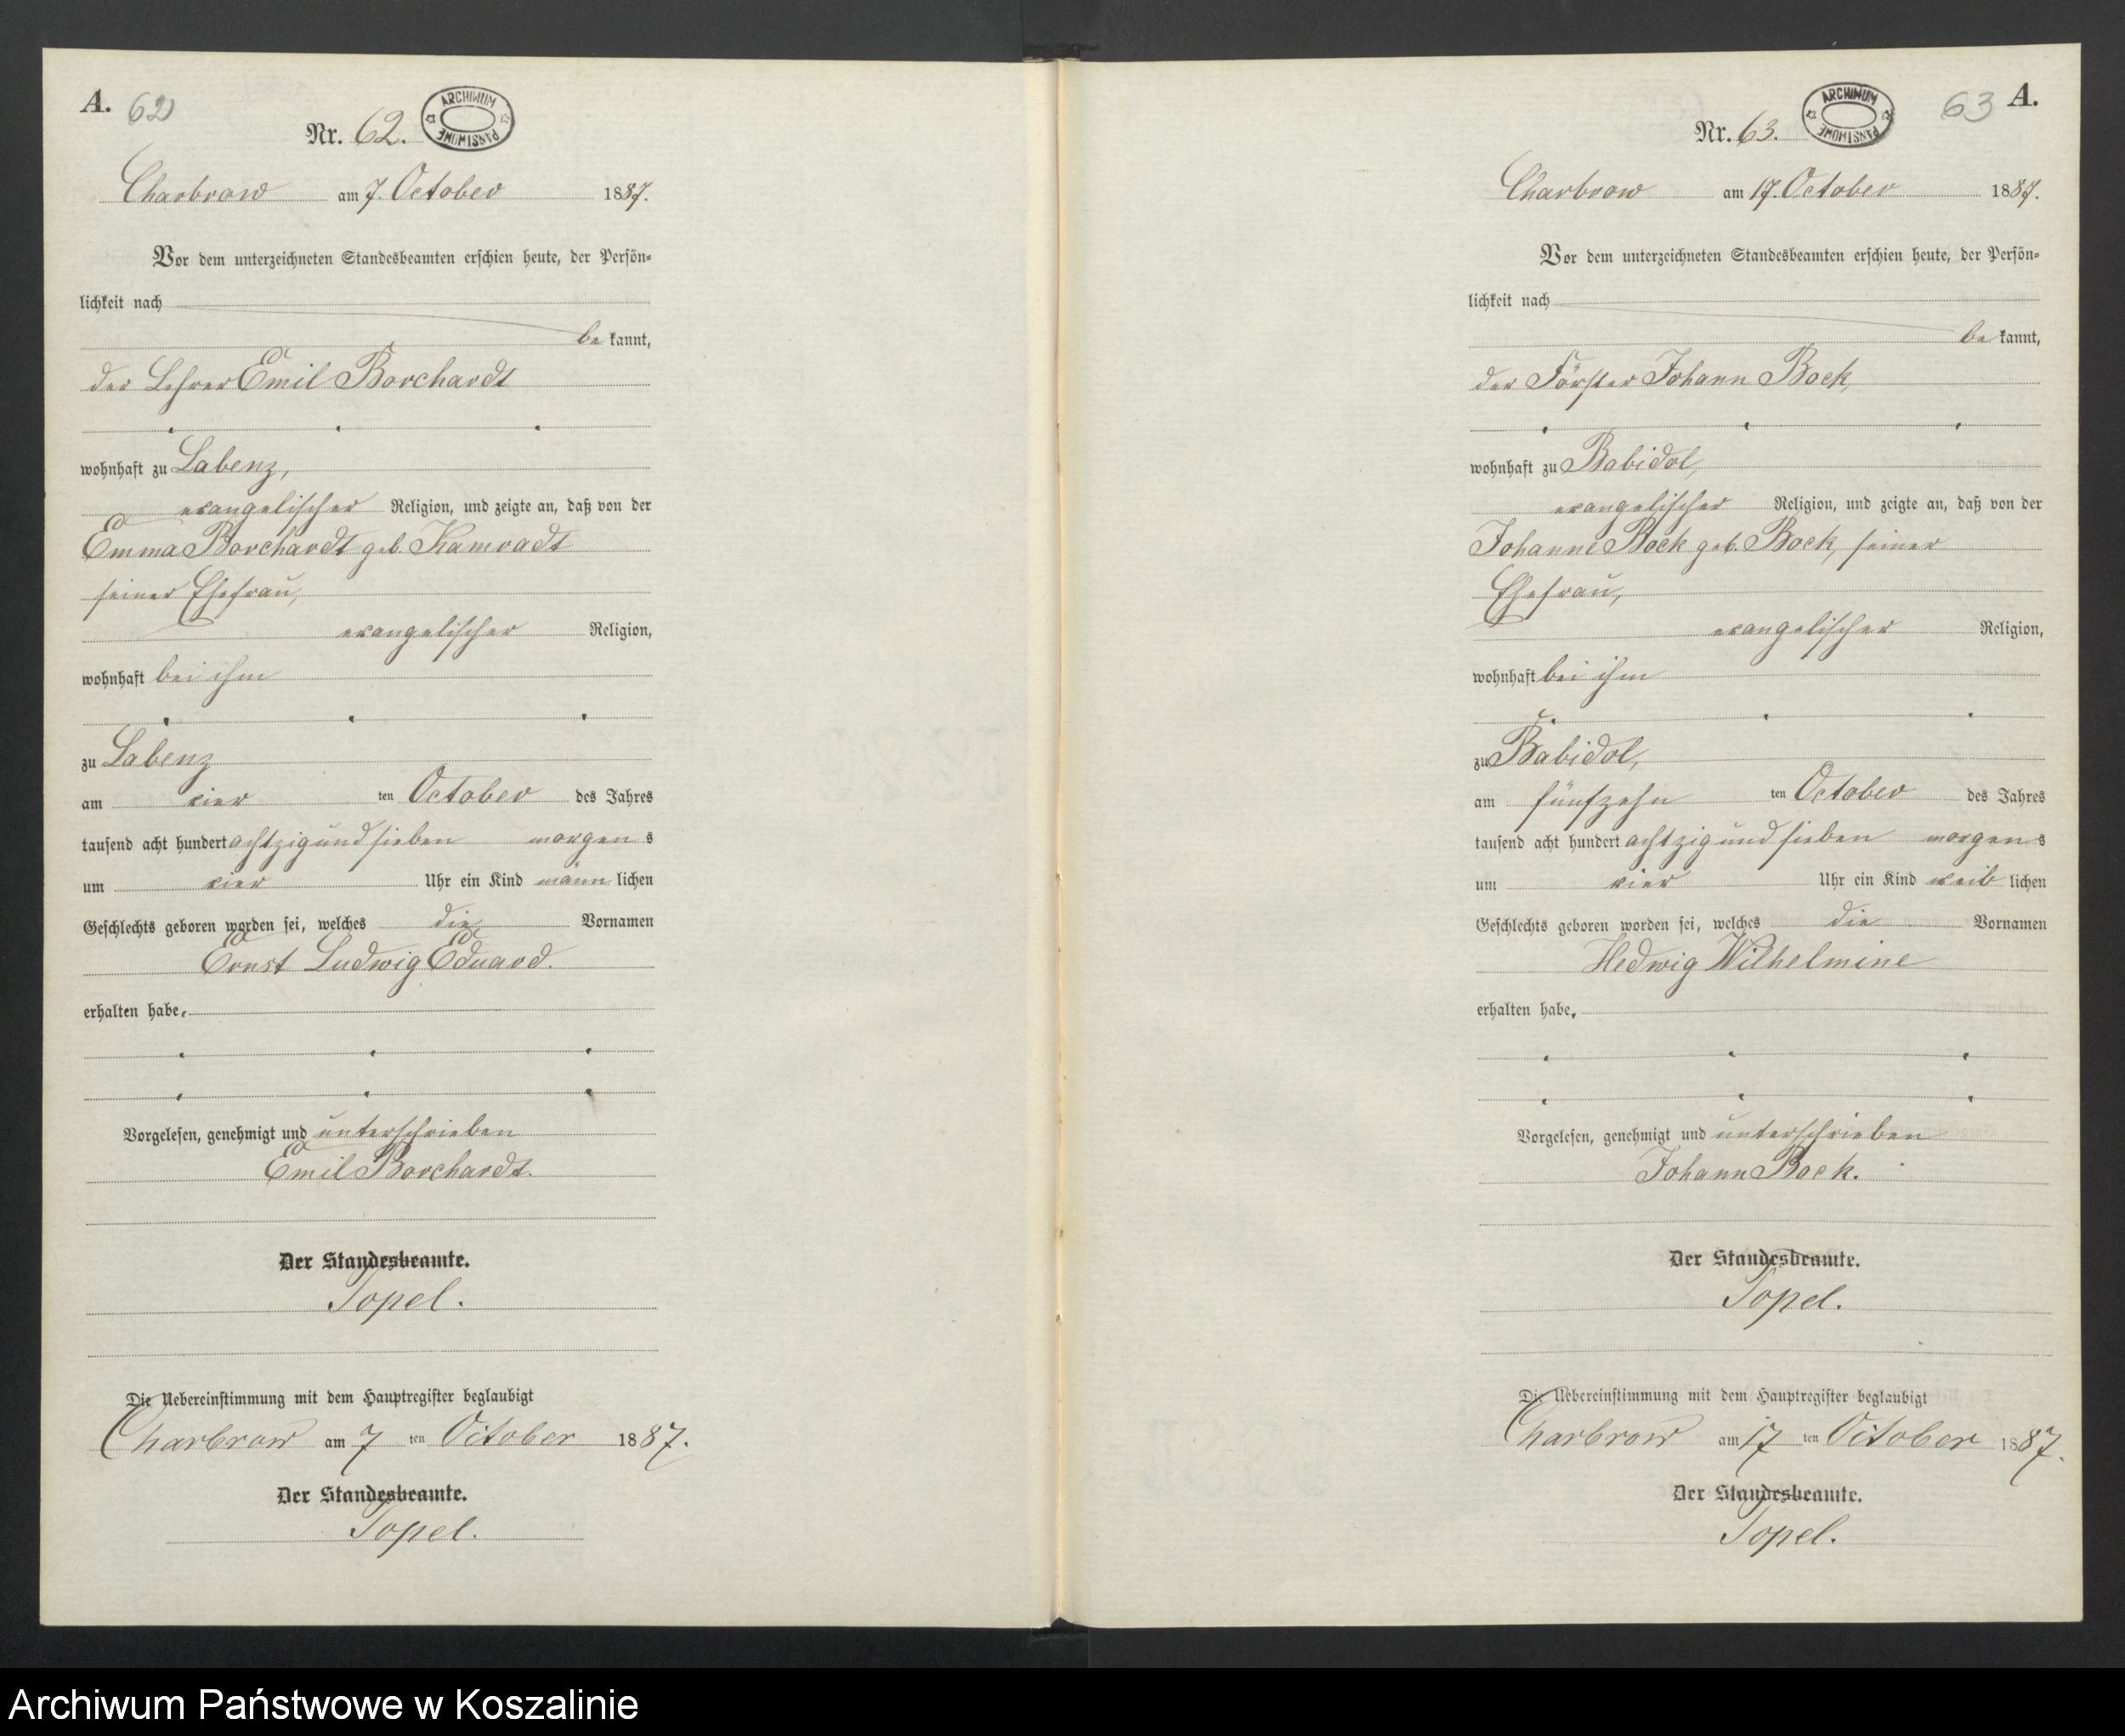 A. 62
Nr. 62.
ARCHIWUM PAŃSTWOWE
Charbrow am 7. October 1887.
Vor dem unterzeichneten Standesbeamten erschien heute, der Persön-
lichkeit nach
be kannt,
der Lehrer Emil Borchardt
wohnhaft zu Labenz,
evangelischer Religion, und zeigte an, daß von der
Emma Borchardt geb. Kamradt
seiner Ehefrau,
evangelischer Religion,
wohnhaft bei ihm
zu Labenz
am vier ten October des Jahres
tausend acht hundert achtzig und sieben morgen s
um vier Uhr ein Kind männ lichen
Geschlechts geboren worden sei, welches die Vornamen
Ernst Ludwig Eduard.
erhalten habe.
Vorgelesen, genehmigt und unterschrieben
Emil Borchardt.
Der Standesbeamte.
Topel.
Die Uebereinstimmung mit dem Hauptregister beglaubigt
Charbrow am 7 ten October 1887.
Der Standesbeamte.
Topel.
63 A.
Nr. 63.
ARCHIWUM PAŃSTWOWE
Charbrow am 17. October 1887.
Vor dem unterzeichneten Standesbeamten erschien heute, der Persön-
lichkeit nach
be kannt,
der Förster Johann Bock,
wohnhaft zu Babidol,
evangelischer Religion, und zeigte an, daß von der
Johanne Bock geb. Bock, seiner
Ehefrau,
evangelischer Religion,
wohnhaft bei ihm
zu Babidol,
am fünfzehn ten October des Jahres
tausend acht hundert achtzig und sieben morgen s
um vier Uhr ein Kind weib lichen
Geschlechts geboren worden sei, welches die Vornamen
Hedwig Wilhelmine
erhalten habe.
Vorgelesen, genehmigt und unterschrieben
Johann Bock.
Der Standesbeamte.
Topel.
Die Uebereinstimmung mit dem Hauptregister beglaubigt
Charbrow am 17 ten October 1887.
Der Standesbeamte.
Topel.
Archiwum Państwowe w Koszalinie